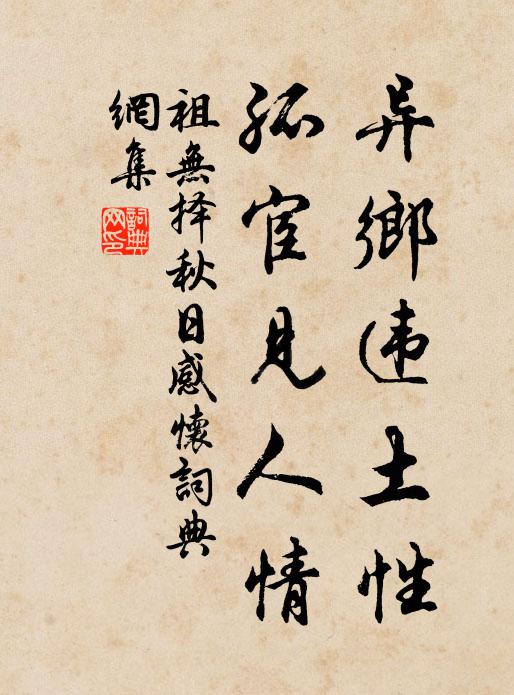 异鄉违土性
孤宦见人情
祖無择秋日感懷詞典
網集
詞典
网印